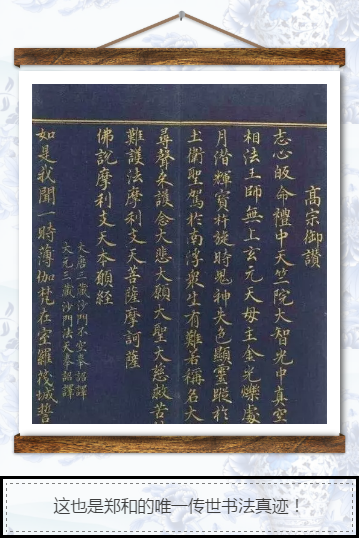 高宗御讃
志心皈命禮中天竺院大智光中真空
相法王師無上玄元天母主金光爍處
月潜輝寶杵旋時鬼神失色顯靈蹤於
土衛聖駕於南浮衆生有難若稱名大
尋聲來護念大悲大願大聖大慈救苦
難護法摩利支天菩薩摩訶薩
佛說摩利支天本願經
大唐三藏沙門不空奉詔譯
大元三藏沙門法天奉詔譯
如是我聞一時薄伽梵在室羅筏城誓
这也是郑和的唯一传世书法真迹！